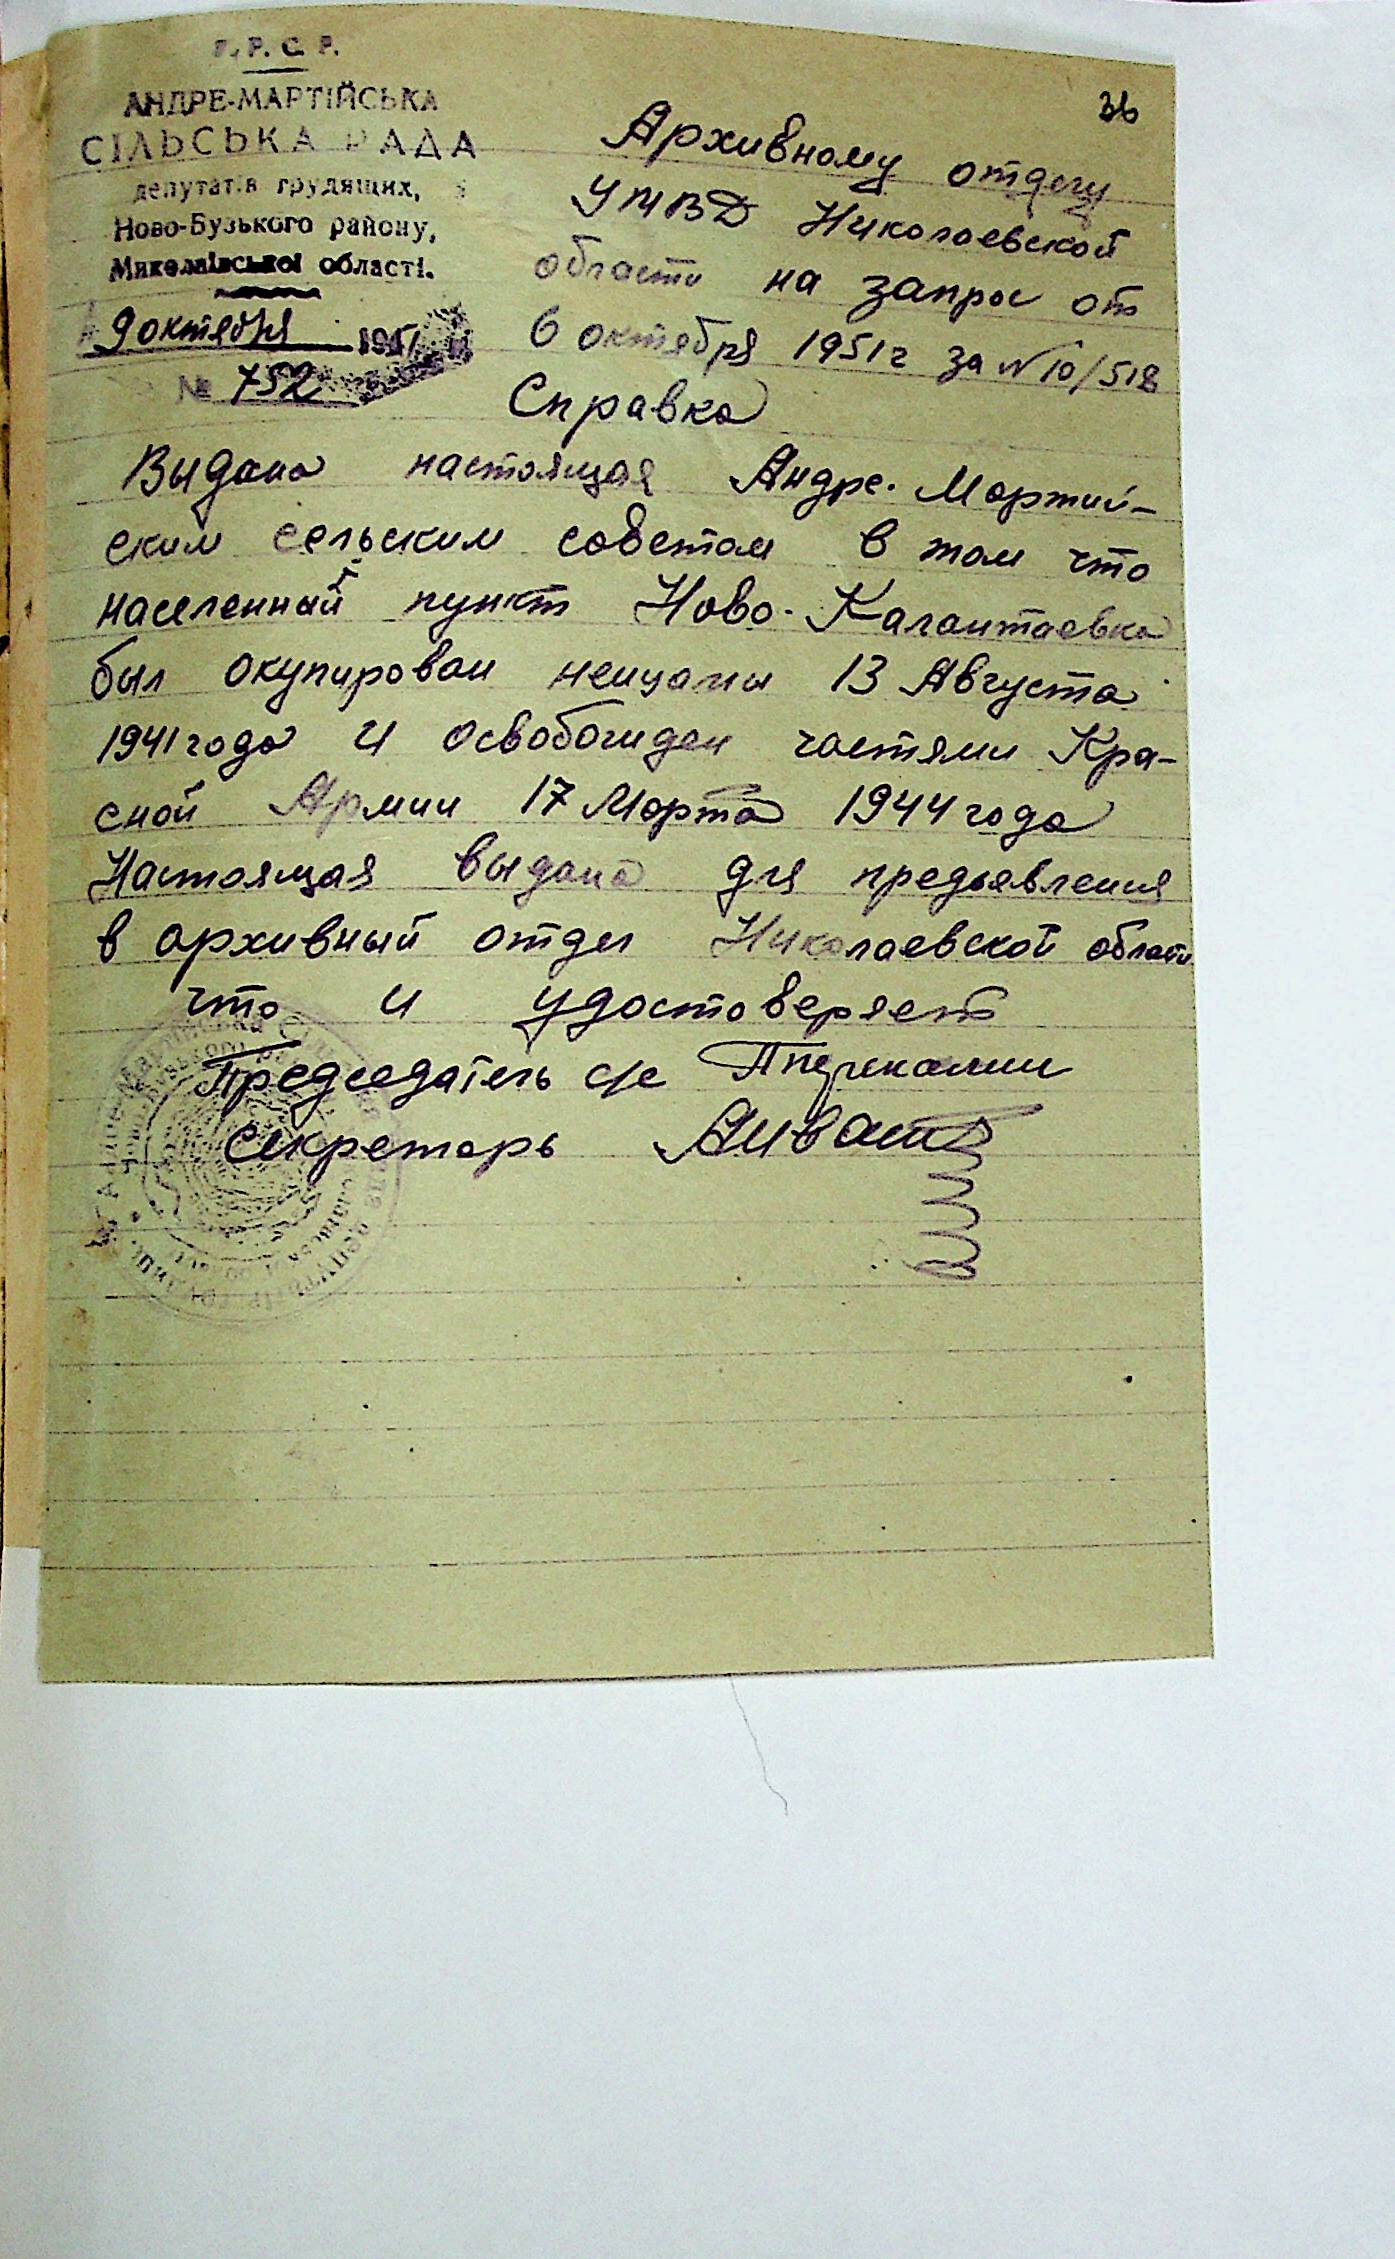 У. Р. С. Р.
АНДРЕ-МАРТІЙСЬКА
СІЛЬСЬКА РАДА
депутатів трудящих,
Ново-Бузького району,
Миколаївської області.
9 октября 1951
№ 752
36
Архивному отделу
УМВД Николаевской
области на запрос от
6 октября 1951 г за N 10/518
Справка
Выдана настоящая Андре-Мартий-
ским сельским советом в том что
населенный пункт Ново-Калантаевка
был окупирован немцами 13 Августа
1941 года и освобожден частями Кра-
сной Армии 17 Марта 1944 года
Настоящая выдана для предьявления
в архивный отдел Николаевской области
что и удостоверяет
Председатель с/с
Секретарь